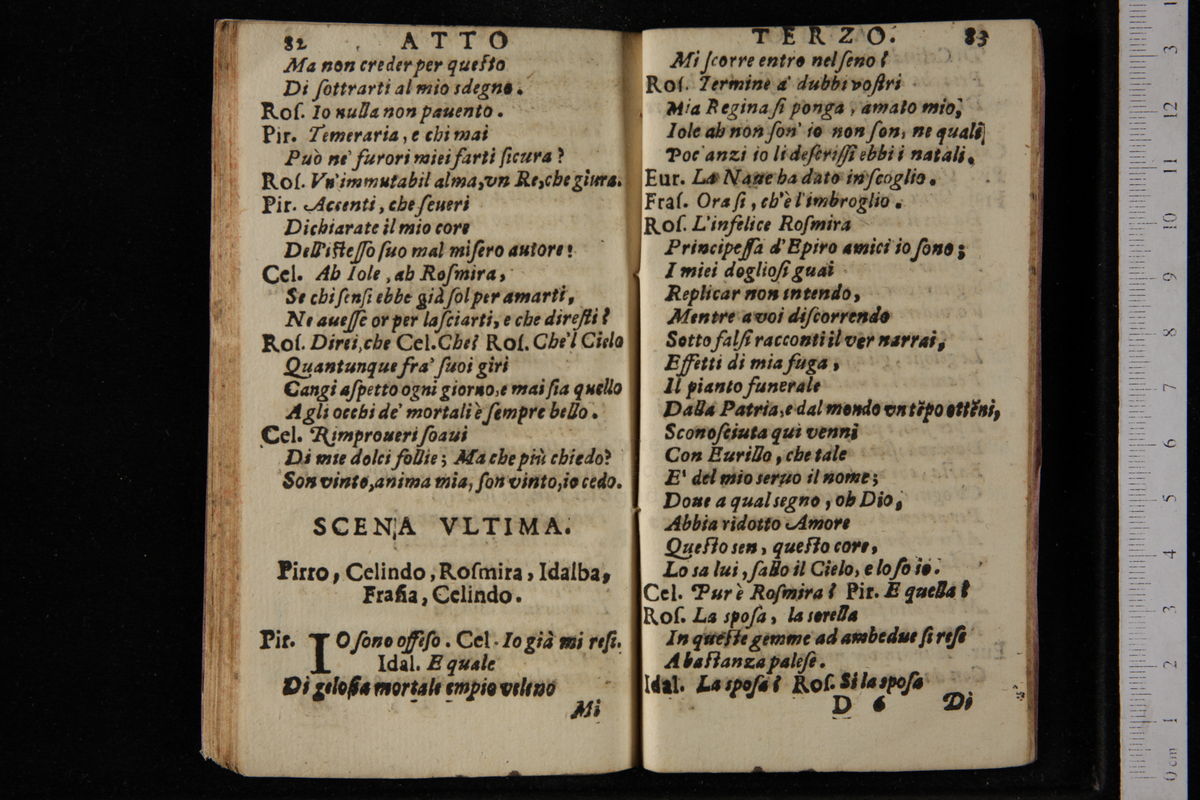 82 ATTO
Ma non creder per queſto
Di ſottrarti al mio sdegno.
Roſ. Io nulla non pauento.
Pir. Temeraria, e chi mai
Può ne' furori miei farti ſicura?
Roſ. Vn' immutabil alma, vn Re, che giura.
Pir. Accenti, che ſeueri
Dichiarate il mio core
Dell' iſteſſo ſuo mal miſero autore!
Cel. Ah Iole, ah Roſmira,
Se chi ſenſi ebbe già ſol per amarti,
Ne aueſſe or per laſciarti, e che direſti?
Roſ. Direi, che Cel. Che? Roſ. Che'l Cielo
Quantunque fra' ſuoi giri
Cangi aſpetto ogni giorno, e mai ſia quello
Agli occhi de' mortali è ſempre bello.
Cel. Rimproueri ſoaui
Di mie dolci follie; Ma che più chiedo?
Son vinto, anima mia, ſon vinto, io cedo.
SCENA VLTIMA.
Pirro, Celindo, Roſmira, Idalba,
Fraſia, Celindo.
Pir. IO ſono offeſo. Cel. Io già mi reſi.
Idal. E quale
Di geloſia mortale empio veleno
Mi
TERZO. 83
Mi ſcorre entro nel ſeno?
Roſ. Termine a' dubbi voſtri
Mia Regina ſi ponga, amato mio,
Iole ah non ſon' io non ſon, ne quali
Poc' anzi io li deſcriſſi ebbi i natali.
Eur. La Naue ha dato in ſcoglio.
Fraſ. Ora ſi, ch'è l'imbroglio.
Roſ. L'infelice Roſmira
Principeſſa d'Epiro amici io ſono;
I miei doglioſi guai
Replicar non intendo,
Mentre a voi diſcorrendo
Sotto falſi racconti il ver narrai,
Effetti di mia fuga,
Il pianto funerale
Dalla Patria, e dal mondo vn tẽpo ottẽni,
Sconoſciuta qui venni
Con Eurillo, che tale
E' del mio seruo il nome;
Doue a qual segno, oh Dio,
Abbia ridotto Amore
Queſto sen, queſto core,
Lo sa lui, ſallo il Cielo, e lo ſo io.
Cel. Pur è Roſmira? Pir. E quella?
Roſ. La ſpoſa, la sorella
In queſte gemme ad ambedue ſi reſe
A baſtanza paleſe.
Idal. La ſpoſa? Roſ. Si la ſpoſa
D 6 Di
0 cm 1 2 3 4 5 6 7 8 9 10 11 12 3 1